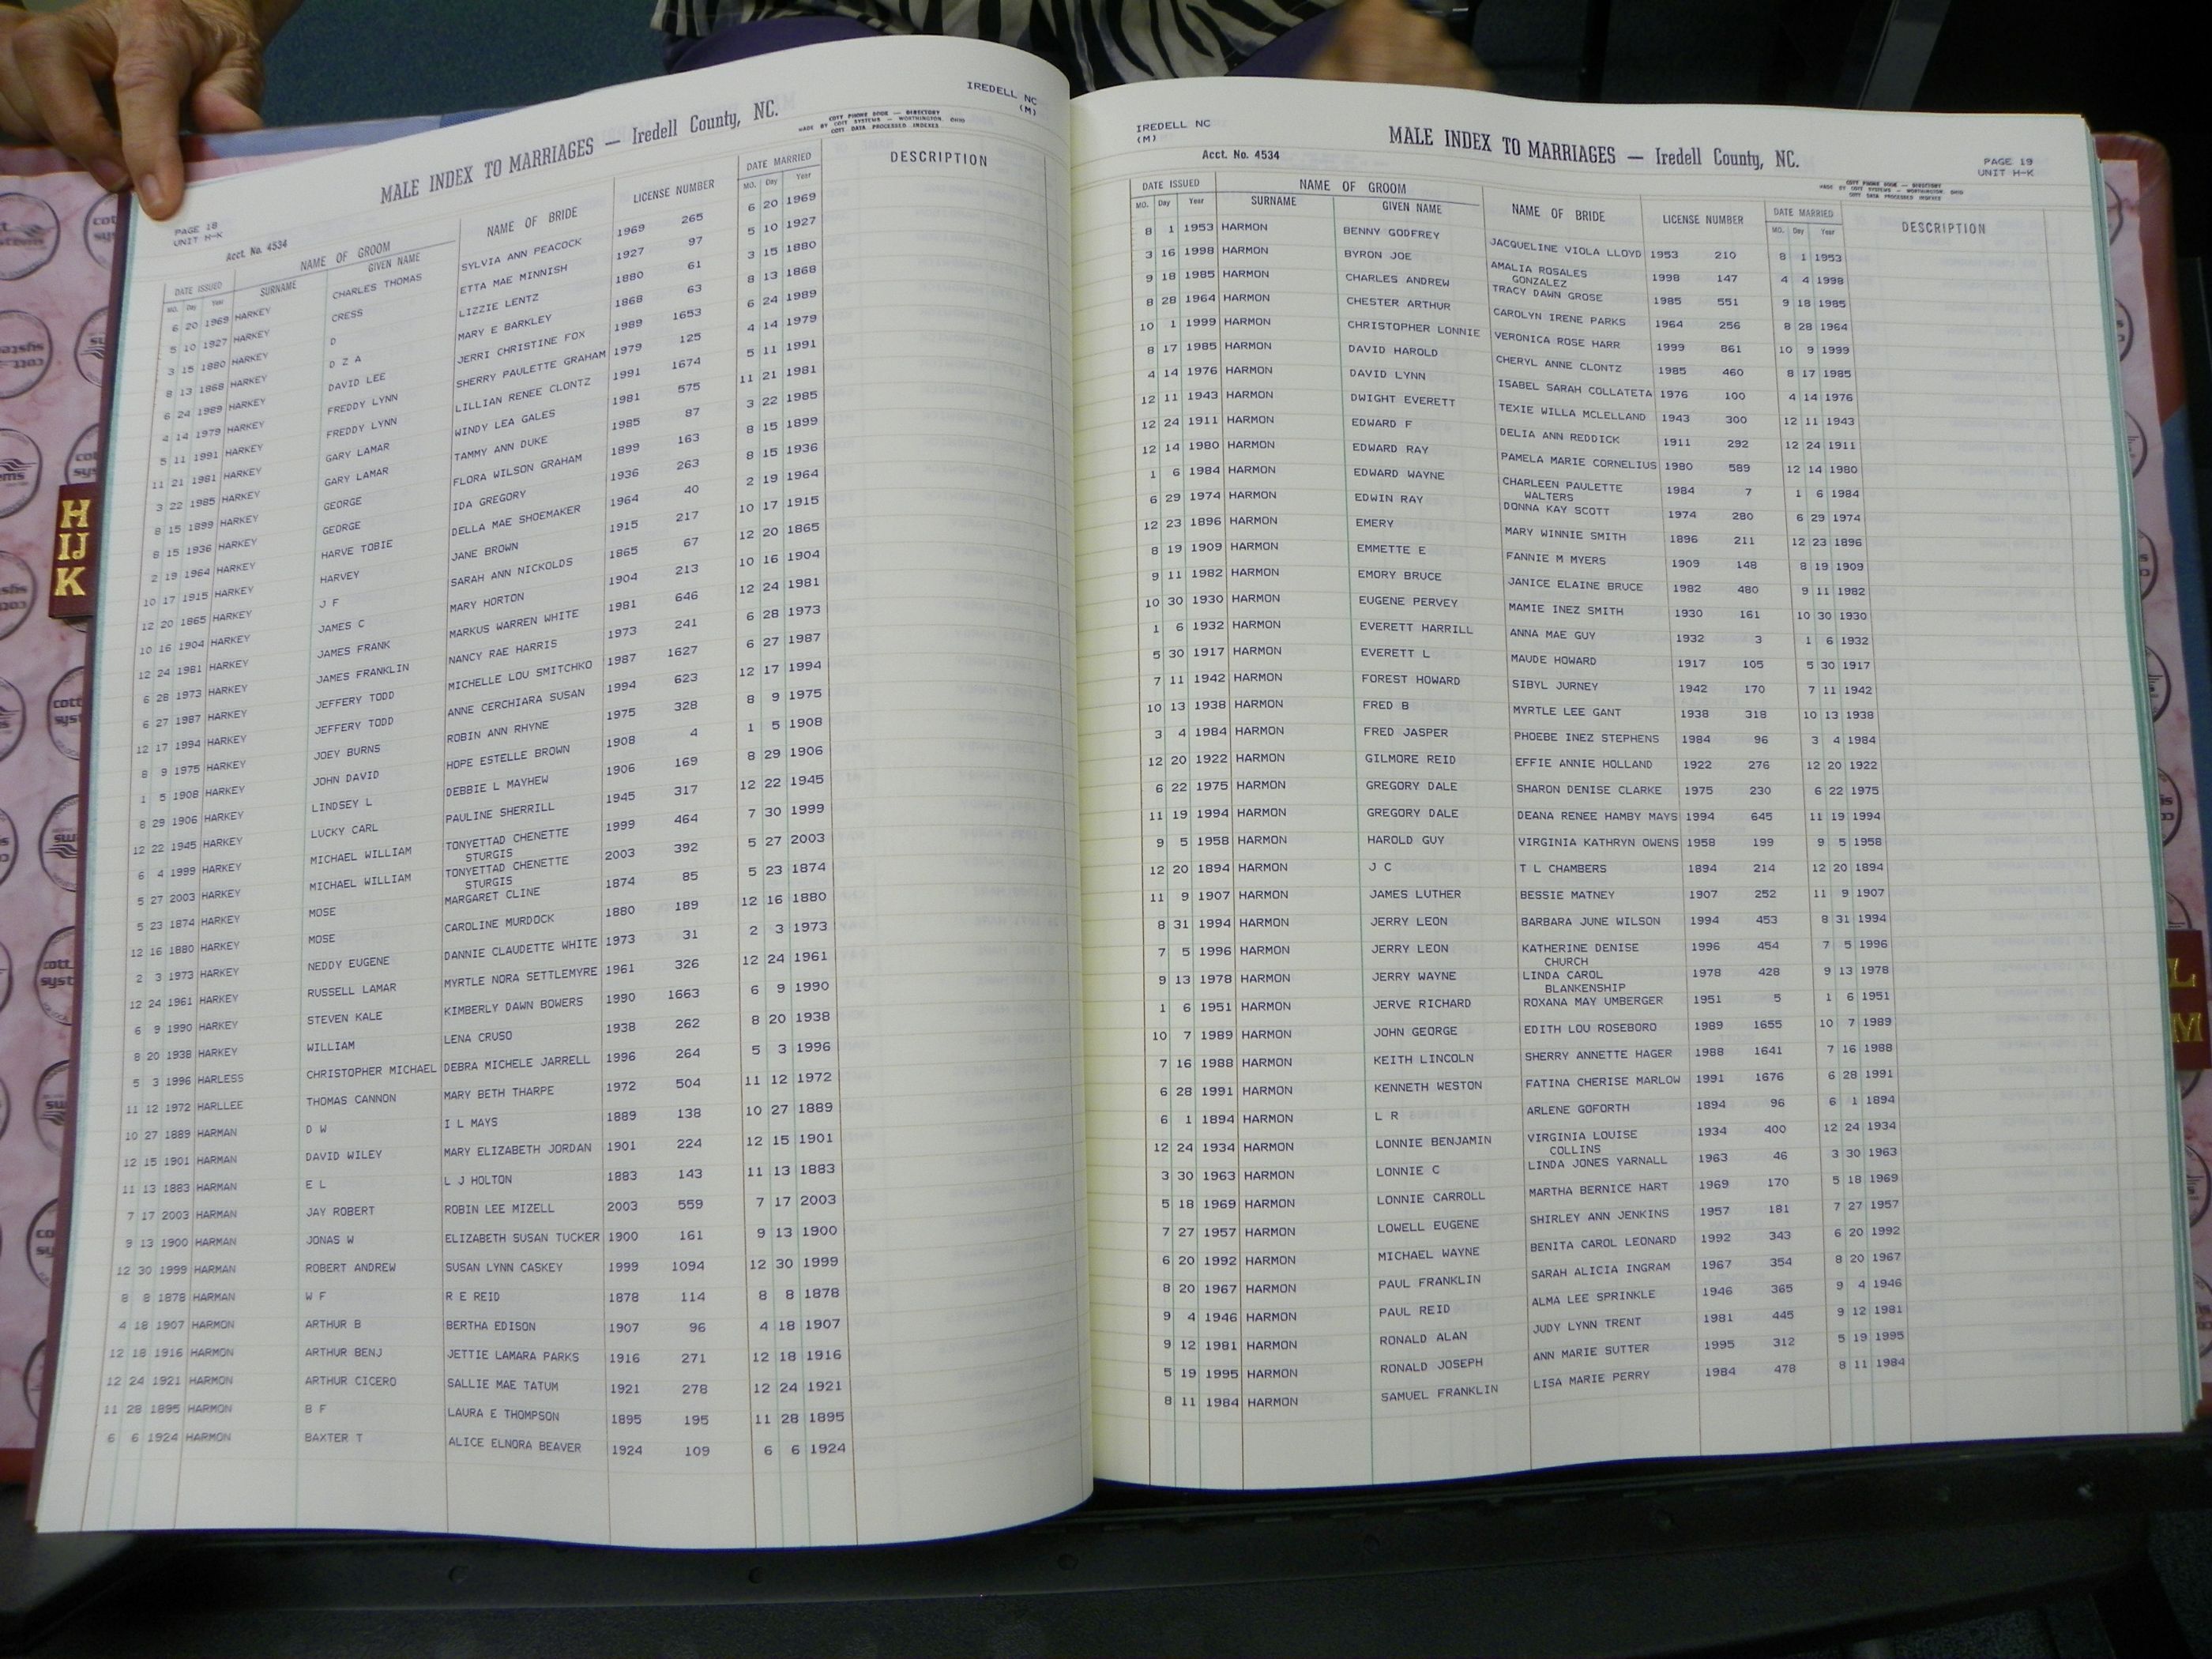 PAGE 18
UNIT H-K
Acct. No. 4534
MALE INDEX TO MARRIAGES — Iredell County, NC.
COTT PHONE BOOK — DIRECTORY
MADE BY COTT SYSTEMS — WORTHINGTON, OHIO
COTT DATA PROCESSED INDEXES
IREDELL NC
(M)
DATE ISSUED NAME OF GROOM NAME OF BRIDE LICENSE NUMBER DATE MARRIED DESCRIPTION
MO. Day Year SURNAME GIVEN NAME MO. Day Year
6 20 1969 HARKEY CHARLES THOMAS SYLVIA ANN PEACOCK 1969 265 6 20 1969
5 10 1927 HARKEY CRESS ETTA MAE MINNISH 1927 97 5 10 1927
3 15 1880 HARKEY D LIZZIE LENTZ 1880 61 3 15 1880
8 13 1868 HARKEY D Z A MARY E BARKLEY 1868 63 8 13 1868
6 24 1989 HARKEY DAVID LEE JERRI CHRISTINE FOX 1989 1653 6 24 1989
4 14 1979 HARKEY FREDDY LYNN SHERRY PAULETTE GRAHAM 1979 125 4 14 1979
5 11 1991 HARKEY FREDDY LYNN LILLIAN RENEE CLONTZ 1991 1674 5 11 1991
11 21 1981 HARKEY GARY LAMAR WINDY LEA GALES 1981 575 11 21 1981
3 22 1985 HARKEY GARY LAMAR TAMMY ANN DUKE 1985 87 3 22 1985
8 15 1899 HARKEY GEORGE FLORA WILSON GRAHAM 1899 163 8 15 1899
8 15 1936 HARKEY GEORGE IDA GREGORY 1936 263 8 15 1936
2 19 1964 HARKEY HARVE TOBIE DELLA MAE SHOEMAKER 1964 40 2 19 1964
10 17 1915 HARKEY HARVEY JANE BROWN 1915 217 10 17 1915
12 20 1865 HARKEY J F SARAH ANN NICKOLDS 1865 67 12 20 1865
10 16 1904 HARKEY JAMES C MARY HORTON 1904 213 10 16 1904
12 24 1981 HARKEY JAMES FRANK MARKUS WARREN WHITE 1981 646 12 24 1981
6 28 1973 HARKEY JAMES FRANKLIN NANCY RAE HARRIS 1973 241 6 28 1973
6 27 1987 HARKEY JEFFERY TODD MICHELLE LOU SMITCHKO 1987 1627 6 27 1987
12 17 1994 HARKEY JEFFERY TODD ANNE CERCHIARA SUSAN 1994 623 12 17 1994
8 9 1975 HARKEY JOEY BURNS ROBIN ANN RHYNE 1975 328 8 9 1975
1 5 1908 HARKEY JOHN DAVID HOPE ESTELLE BROWN 1908 4 1 5 1908
8 29 1906 HARKEY LINDSEY L DEBBIE L MAYHEW 1906 169 8 29 1906
12 22 1945 HARKEY LUCKY CARL PAULINE SHERRILL 1945 317 12 22 1945
6 4 1999 HARKEY MICHAEL WILLIAM TONYETTAD CHENETTE 1999 464 7 30 1999
STURGIS
5 27 2003 HARKEY MICHAEL WILLIAM TONYETTAD CHENETTE 2003 392 5 27 2003
STURGIS
5 23 1874 HARKEY MOSE MARGARET CLINE 1874 85 5 23 1874
12 16 1880 HARKEY MOSE CAROLINE MURDOCK 1880 189 12 16 1880
2 3 1973 HARKEY NEDDY EUGENE DANNIE CLAUDETTE WHITE 1973 31 2 3 1973
12 24 1961 HARKEY RUSSELL LAMAR MYRTLE NORA SETTLEMYRE 1961 326 12 24 1961
6 9 1990 HARKEY STEVEN KALE KIMBERLY DAWN BOWERS 1990 1663 6 9 1990
8 20 1938 HARKEY WILLIAM LENA CRUSO 1938 262 8 20 1938
5 3 1996 HARLESS CHRISTOPHER MICHAEL DEBRA MICHELE JARRELL 1996 264 5 3 1996
11 12 1972 HARLLEE THOMAS CANNON MARY BETH THARPE 1972 504 11 12 1972
10 27 1889 HARMAN D W I L MAYS 1889 138 10 27 1889
12 15 1901 HARMAN DAVID WILEY MARY ELIZABETH JORDAN 1901 224 12 15 1901
11 13 1883 HARMAN E L L J HOLTON 1883 143 11 13 1883
7 17 2003 HARMAN JAY ROBERT ROBIN LEE MIZELL 2003 559 7 17 2003
9 13 1900 HARMAN JONAS W ELIZABETH SUSAN TUCKER 1900 161 9 13 1900
12 30 1999 HARMAN ROBERT ANDREW SUSAN LYNN CASKEY 1999 1094 12 30 1999
8 8 1878 HARMAN W F R E REID 1878 114 8 8 1878
4 18 1907 HARMON ARTHUR B BERTHA EDISON 1907 96 4 18 1907
12 18 1916 HARMON ARTHUR BENJ JETTIE LAMARA PARKS 1916 271 12 18 1916
12 24 1921 HARMON ARTHUR CICERO SALLIE MAE TATUM 1921 278 12 24 1921
11 28 1895 HARMON B F LAURA E THOMPSON 1895 195 11 28 1895
6 6 1924 HARMON BAXTER T ALICE ELNORA BEAVER 1924 109 6 6 1924
H
IJ
K
IREDELL NC
(M)
Acct. No. 4534
MALE INDEX TO MARRIAGES — Iredell County, NC.
COTT PHONE BOOK — DIRECTORY
MADE BY COTT SYSTEMS — WORTHINGTON, OHIO
COTT DATA PROCESSED INDEXES
PAGE 19
UNIT H-K
DATE ISSUED NAME OF GROOM NAME OF BRIDE LICENSE NUMBER DATE MARRIED DESCRIPTION
MO. Day Year SURNAME GIVEN NAME MO. Day Year
8 1 1953 HARMON BENNY GODFREY JACQUELINE VIOLA LLOYD 1953 210 8 1 1953
3 16 1998 HARMON BYRON JOE AMALIA ROSALES 1998 147 4 4 1998
GONZALEZ
9 18 1985 HARMON CHARLES ANDREW TRACY DAWN GROSE 1985 551 9 18 1985
8 28 1964 HARMON CHESTER ARTHUR CAROLYN IRENE PARKS 1964 256 8 28 1964
10 1 1999 HARMON CHRISTOPHER LONNIE VERONICA ROSE HARR 1999 861 10 9 1999
8 17 1985 HARMON DAVID HAROLD CHERYL ANNE CLONTZ 1985 460 8 17 1985
4 14 1976 HARMON DAVID LYNN ISABEL SARAH COLLATETA 1976 100 4 14 1976
12 11 1943 HARMON DWIGHT EVERETT TEXIE WILLA MCLELLAND 1943 300 12 11 1943
12 24 1911 HARMON EDWARD F DELIA ANN REDDICK 1911 292 12 24 1911
12 14 1980 HARMON EDWARD RAY PAMELA MARIE CORNELIUS 1980 589 12 14 1980
1 6 1984 HARMON EDWARD WAYNE CHARLEEN PAULETTE 1984 7 1 6 1984
WALTERS
6 29 1974 HARMON EDWIN RAY DONNA KAY SCOTT 1974 280 6 29 1974
12 23 1896 HARMON EMERY MARY WINNIE SMITH 1896 211 12 23 1896
8 19 1909 HARMON EMMETTE E FANNIE M MYERS 1909 148 8 19 1909
9 11 1982 HARMON EMORY BRUCE JANICE ELAINE BRUCE 1982 480 9 11 1982
10 30 1930 HARMON EUGENE PERVEY MAMIE INEZ SMITH 1930 161 10 30 1930
1 6 1932 HARMON EVERETT HARRILL ANNA MAE GUY 1932 3 1 6 1932
5 30 1917 HARMON EVERETT L MAUDE HOWARD 1917 105 5 30 1917
7 11 1942 HARMON FOREST HOWARD SIBYL JURNEY 1942 170 7 11 1942
10 13 1938 HARMON FRED B MYRTLE LEE GANT 1938 318 10 13 1938
3 4 1984 HARMON FRED JASPER PHOEBE INEZ STEPHENS 1984 96 3 4 1984
12 20 1922 HARMON GILMORE REID EFFIE ANNIE HOLLAND 1922 276 12 20 1922
6 22 1975 HARMON GREGORY DALE SHARON DENISE CLARKE 1975 230 6 22 1975
11 19 1994 HARMON GREGORY DALE DEANA RENEE HAMBY MAYS 1994 645 11 19 1994
9 5 1958 HARMON HAROLD GUY VIRGINIA KATHRYN OWENS 1958 199 9 5 1958
12 20 1894 HARMON J C T L CHAMBERS 1894 214 12 20 1894
11 9 1907 HARMON JAMES LUTHER BESSIE MATNEY 1907 252 11 9 1907
8 31 1994 HARMON JERRY LEON BARBARA JUNE WILSON 1994 453 8 31 1994
7 5 1996 HARMON JERRY LEON KATHERINE DENISE 1996 454 7 5 1996
CHURCH
9 13 1978 HARMON JERRY WAYNE LINDA CAROL 1978 428 9 13 1978
BLANKENSHIP
1 6 1951 HARMON JERVE RICHARD ROXANA MAY UMBERGER 1951 5 1 6 1951
10 7 1989 HARMON JOHN GEORGE EDITH LOU ROSEBORO 1989 1655 10 7 1989
7 16 1988 HARMON KEITH LINCOLN SHERRY ANNETTE HAGER 1988 1641 7 16 1988
6 28 1991 HARMON KENNETH WESTON FATINA CHERISE MARLOW 1991 1676 6 28 1991
6 1 1894 HARMON L R ARLENE GOFORTH 1894 96 6 1 1894
12 24 1934 HARMON LONNIE BENJAMIN VIRGINIA LOUISE 1934 400 12 24 1934
COLLINS
3 30 1963 HARMON LONNIE C LINDA JONES YARNALL 1963 46 3 30 1963
5 18 1969 HARMON LONNIE CARROLL MARTHA BERNICE HART 1969 170 5 18 1969
7 27 1957 HARMON LOWELL EUGENE SHIRLEY ANN JENKINS 1957 181 7 27 1957
6 20 1992 HARMON MICHAEL WAYNE BENITA CAROL LEONARD 1992 343 6 20 1992
8 20 1967 HARMON PAUL FRANKLIN SARAH ALICIA INGRAM 1967 354 8 20 1967
9 4 1946 HARMON PAUL REID ALMA LEE SPRINKLE 1946 365 9 4 1946
9 12 1981 HARMON RONALD ALAN JUDY LYNN TRENT 1981 445 9 12 1981
5 19 1995 HARMON RONALD JOSEPH ANN MARIE SUTTER 1995 312 5 19 1995
8 11 1984 HARMON SAMUEL FRANKLIN LISA MARIE PERRY 1984 478 8 11 1984
L
M